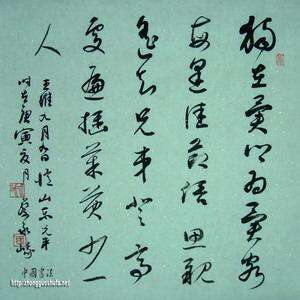 獨在異鄉为異客
每逢佳節倍思親
遙知兄弟登高
處遍插茱萸少一
人
王維九月九日憶山东兄弟
时在庚寅夏月
中國書法
http://zhongguoshufa.net